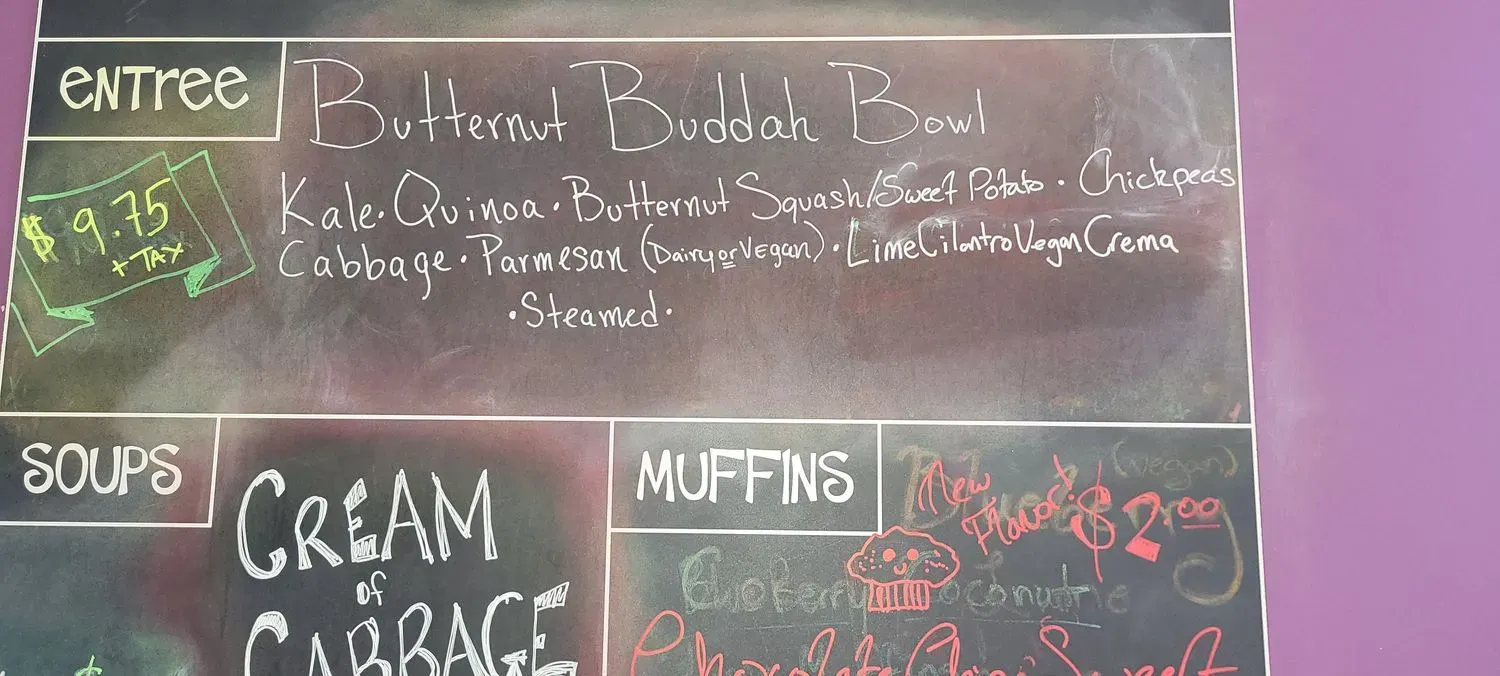 ENTree
Butternut Buddah Bowl
$ 9.75
+ TAX
Kale · Quinoa · Butternut Squash/Sweet Potato · Chickpeas
Cabbage · Parmesan (Dairy or Vegan) · Lime Cilantro Vegan Crema
· Steamed ·
SOUPS
CREAM
of
CABBAGE
MUFFINS
(vegan)
New
Flavor!
$2.00
Chocolate Chip Sweet